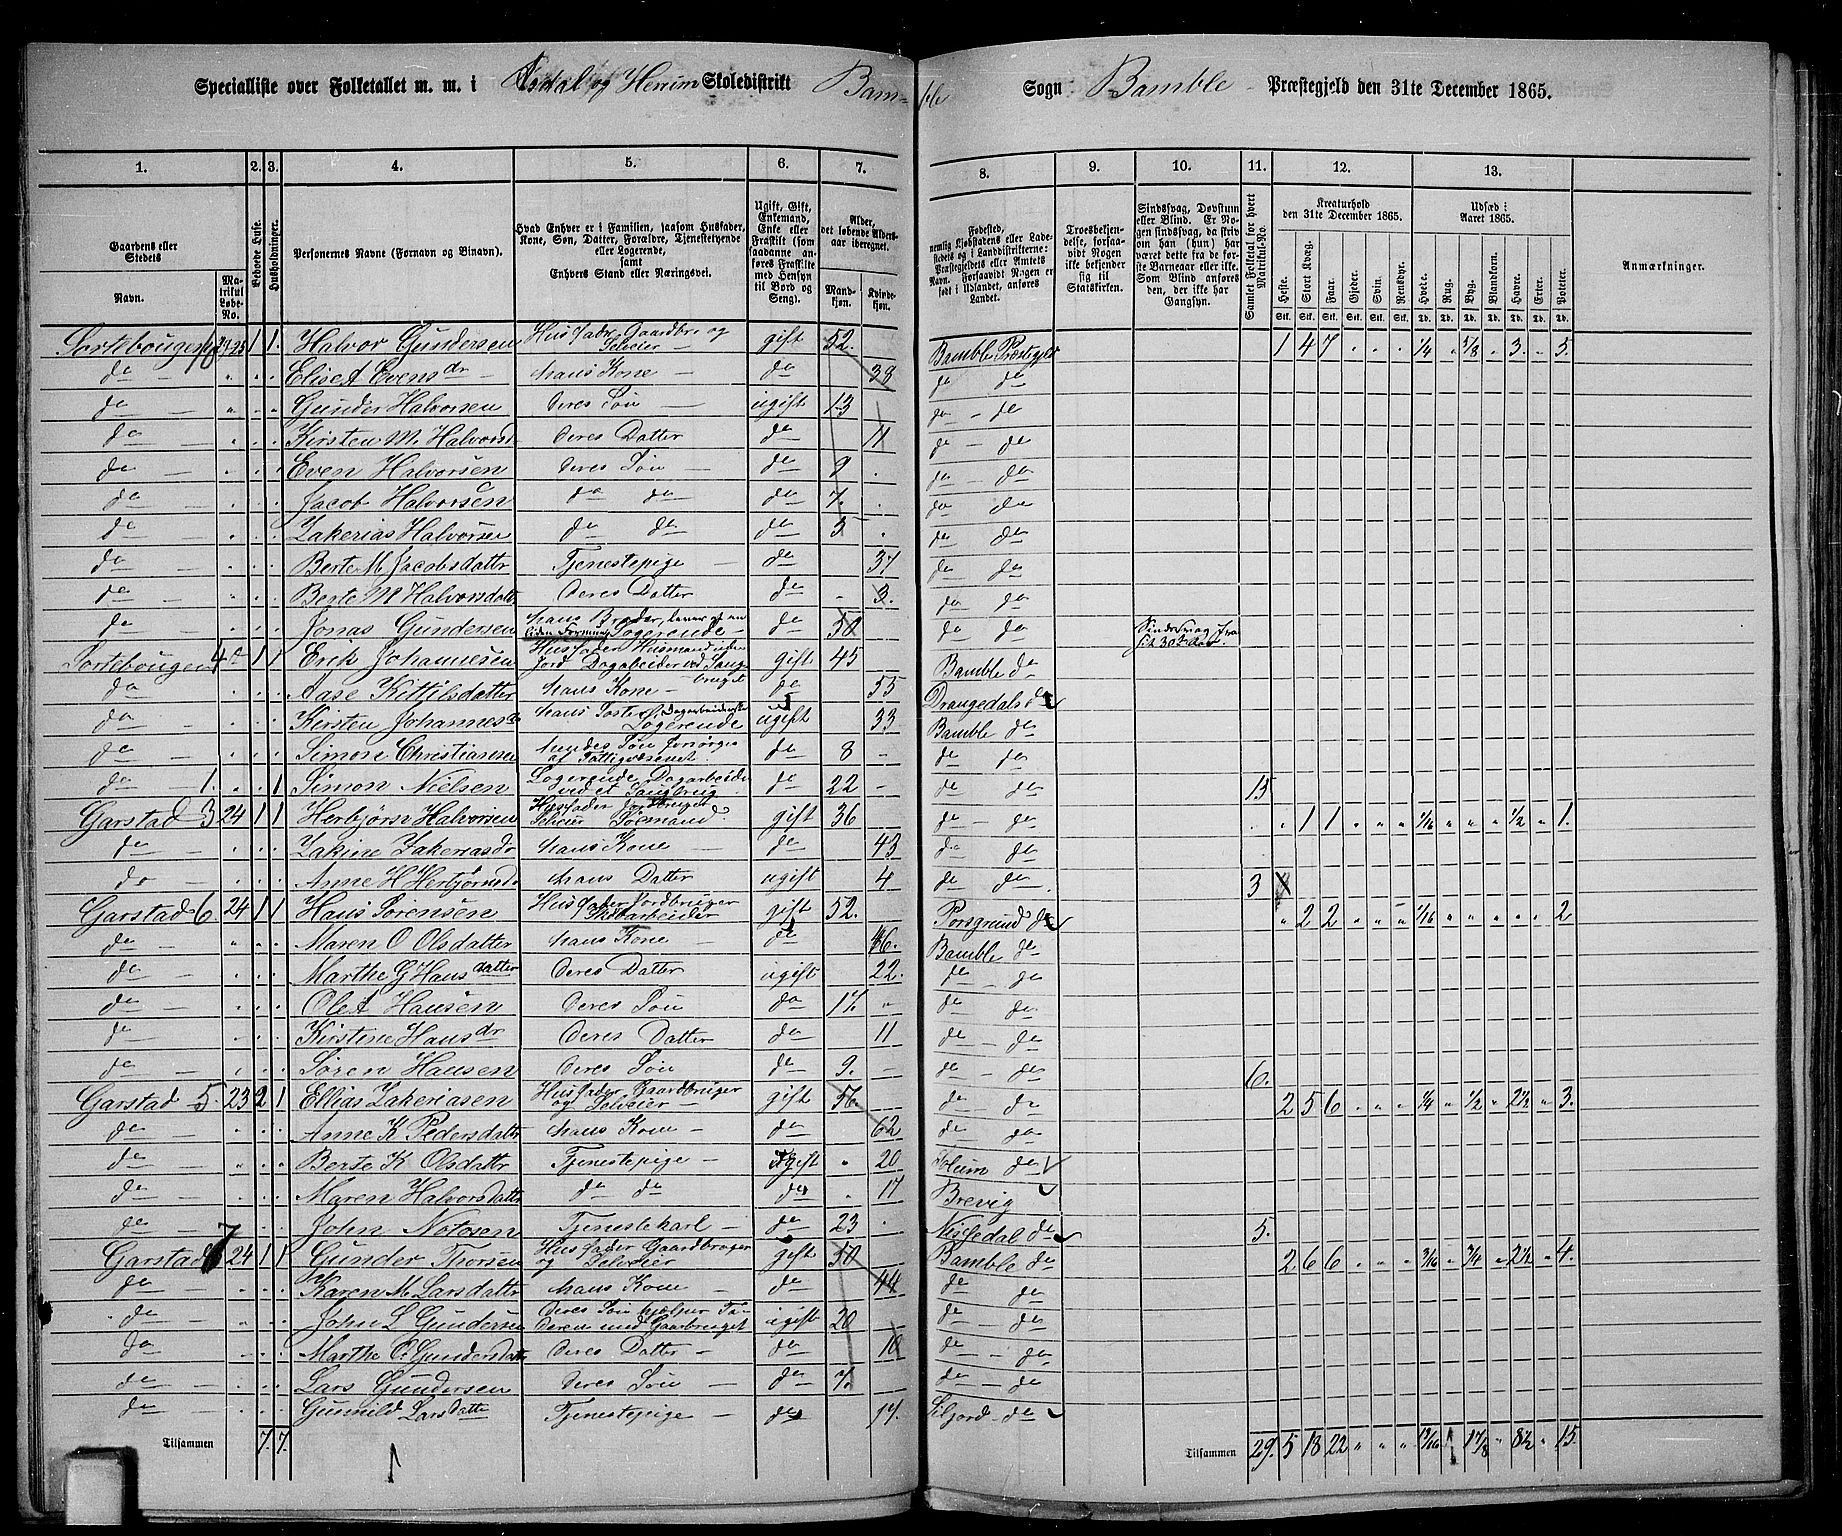 Specialliste over Folketallet m. m. i Asdal og Herum Skoledistrikt Bamble Sogn Bamble Præstegjeld den 31te December 1865.
1. 2. 3. 4. 5. 6. 7. 8. 9. 10. 11. 12. 13.
Gaardens eller Stedets Navn. Matrikul Løbe-No. Beboede Huse. Husholdninger. Personernes Navne (Fornavn og Binavn).
Hvad Enhver er i Familien, saasom Husfader, Kone, Søn, Datter, Forældre, Tjenestetyende eller Logerende, samt Enhvers Stand eller Næringsvei.
Ugift, Gift, Enkemand, Enke eller Fraskilt (saadanne anføres Fraskilte med Hensyn til Bord og Seng).
Alder, det løbende Aldersaar iberegnet. Mandkjøn. Kvindekjøn.
Fødested, nemlig Kjøbstadens eller Ladestedets og i Landdistrikterne: Præstegjeldets eller Amtets Navn. Forsaavidt Nogen er født i Udlandet, anføres Landet.
Troesbekjendelse, forsaavidt Nogen ikke bekjender sig til Statskirken.
Sindssvag, Døvstum eller Blind. Er Nogen sindssvag, da skriv om han (hun) har været det fra de første Barneaar eller ikke. Som Blind anføres den, der ikke har Gangsyn.
Samlet Folketal for hvert Matrikul-No.
Kreaturhold den 31te December 1865. Heste. Stort Kvæg. Faar. Gjeder. Svin. Rensdyr.
Udsæd i Aaret 1865. Hvede. Rug. Byg. Blandkorn. Havre. Erter. Poteter.
Anmærkninger.
Stk. Stk. Stk. Stk. Stk. Stk. Td. Td. Td. Td. Td. Td. Td.
23-25 1 1 Halvor Gundersen Husfader Gaardbr og Selveier gift 52. Bamble Præstegjeld 1 4 7 1/4 5/8 3 5
do Elise A Evensdr hans Kone do 38 do do
do Gunder Halvorsen Deres Søn ugift 13 do do
do Kirsten M. Halvorsd Deres Datter do 11 do do
do Even Halvorsen Deres Søn do 9 do do
do Jacob Halvorsen do do do 7. do do
do Zakerias Halvorsen do do do 5 do do
do Berte M Jacobsdatter Tjenestepige do 37 do do
do Berte M Halvorsdatter Deres Datter do 3. do do
do Jonas Gundersen hans Broder, lever af en liden Formue Logerende do 50 do do Sindssvag fra sit 30te Aar.
1 1 Erik Johannesen Husfader Husmand uden Jord Dagarbeider ved Saugbruget gift 45 Bamble do
do Aase Kittilsdatter hans Kone do 55 Drangedals do
do Kirsten Johannesd hans Søster Dagarbeiderske Logerende ugift 33 Bamble do
do Simon Christiansen hendes Søn forsørges af Fattigvæsenet do 8 do do
do 1. 1 Simon Nielsen Logerende Dagarbeider ved et Saugbrug do 22 do do 15
Garstad 3 24 1 1 Herbjørn Halvorsen Husfader Jordbruger Selveier Sømand gift 36 do do 1 1 1/16 1/2 1.
do Zakine Zakeriasdr hans Kone do 43 do do
do Anne H Herbjørnsd hans Datter ugift 4 do do 3
Garstad 6. 24 1 1 Hans Sørensen Husfader Jordbruger gift 52. Porsgrund do 2 2 1/16 2
do Maren O Olsdatter hans Kone do 46. Bamble do
do Marthe G Hansdatter Deres Datter ugift 22. do do
do Ole A Hansen Deres Søn do 17. do do
do Kirstine Hansdr Deres Datter do 11 do do
do Søren Hansen Deres Søn do 9. do do 6.
Garstad 5. 23 2 1 Ellias Zakeriasen Husfader Gaardbruger og Selveier gift 56. do do 2 5 6 1/4 1/2 2 1/2 3.
do Anne K Pedersdatter hans Kone do 62 do do
do Berte K Olsdatter Tjenestepige Ugift 20 Solum do
do Maren Halvorsdatter do do do 17 Brevig
do John Notosen Tjenestekarl do 23 Nissedal do 5.
Garstad 7 24 1 1 Gunder Thorsen Husfader Gaardbruger og Selveier gift 50 Bamble do 2 6 6 3/16 3/4 2 1/2 4.
do Karen M Larsdatter hans Kone do 44 do do
do John L Gundersen Deres Søn hjelper Faderen med Gaarbruget ugift 20 do do
do Marthe O. Gundersdatter Deres Datter do 10 do do
do Lars Gundersen Deres Søn do 7. do do
do Gunnild Larsdatter Tjenestepige do 17. Siljord do
Tilsammen 7. 7. Tilsammen 29. 5 18 22 13/16 1 7/8 8 1/2 15.